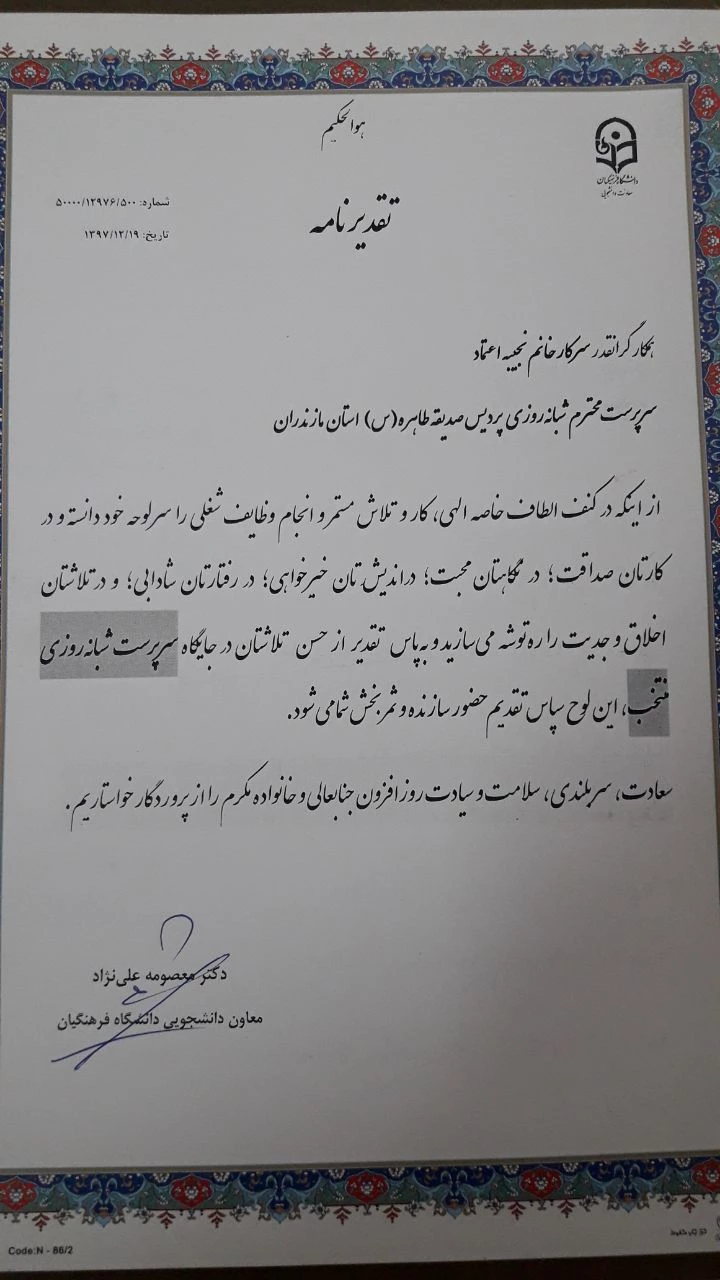 هوالحکیم
دانشگاه فرهنگیان
معاونت دانشجویی
شماره: ۵۰۰۰۰/۱۲۹۷۶/۵۰۰
تاریخ: ۱۳۹۷/۱۲/۱۹
تقدیرنامه
همکار گرانقدر سرکار خانم نجیبه اعتماد
سرپرست محترم شبانه روزی پردیس صدیقه طاهره (س) استان مازندران
از اینکه در کنف الطاف خاصه الهی، کار و تلاش مستمر و انجام وظایف شغلی را سرلوحه خود دانسته و در
کارتان صداقت؛ در نگاهتان محبت؛ در اندیش تان خیرخواهی؛ در رفتارتان شادابی؛ و در تلاشتان
اخلاق و جدیت را ره توشه می‌سازید و به پاس تقدیر از حسن تلاشتان در جایگاه سرپرست شبانه روزی
منتخب، این لوح سپاس تقدیم حضور سازنده و ثمربخش شما می شود.
سعادت، سربلندی، سلامت و سیادت روزافزون جنابعالی و خانواده مکرم را از پروردگار خواستاریم.
دکتر معصومه علی‌نژاد
معاون دانشجویی دانشگاه فرهنگیان
Code:N - 86/2